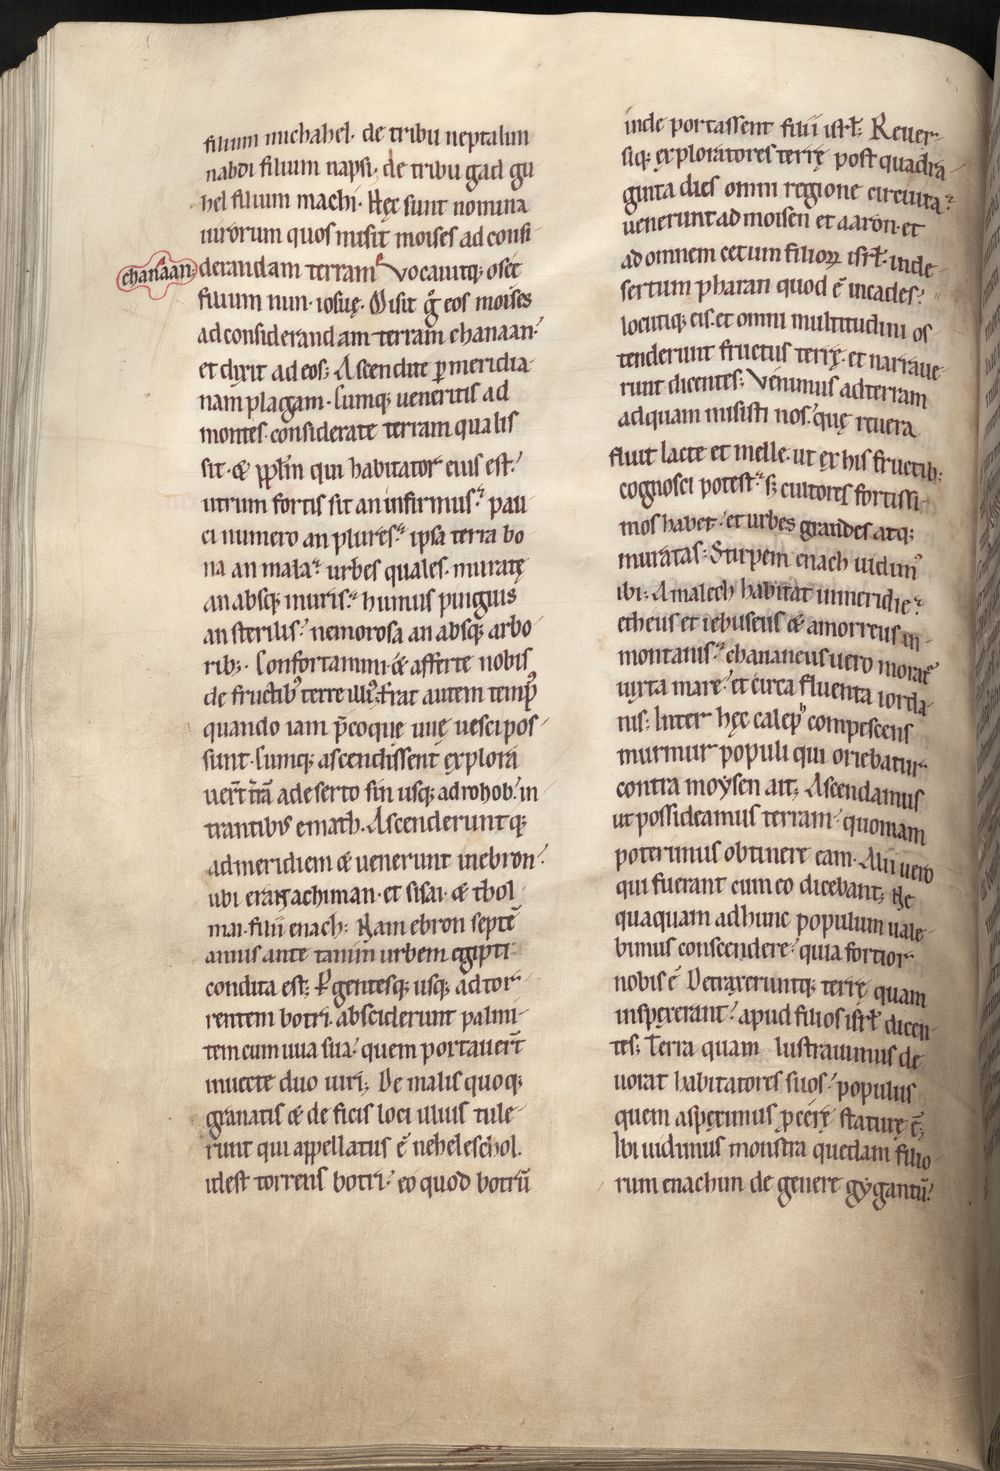 filium michahel· de tribu neptalim
nabdi filium napsi· de tribu gad gu
hel filium machi· Hęc sunt nomina
uirorum quos misit moises ad consi
chanaan:
derandam terram· Vocauitq; osee
filium nun· iosuę· Misit g̊ eos moises
ad considerandam terram chanaan·
et dixit ad eos; Ascendite p̱ meridia
nam plagam· Cumq; ueneritis ad
montes· considerate terram qualis
sit· & pp̄l̄m qui habitator eius est·
utrum fortis sit an infirmus· pau
ci numero an plures· ipsa terra bo
na an mala· urbes quales· muratę
an absq; muris· humus pinguis
an sterilis· nemorosa an absq; arbo
rib;· Confortamini· & afferte nobis
de fructib; terre illi᷒; Erat autem temp᷒
quando iam p̄coque uuę uesci pos
sunt· Cumq; ascendissent explora
uer̄t t̄rā a deserto sin usq; ad rohob· in
trantibus emath· Ascenderuntq;
ad meridiem & uenerunt in ebron·
ubi erant achiman· et sisai· & thol
mai· filii enach; Nam ebron septē
annis ante tanim urbem egipti
condita est; P̱gentesq; usq; ad tor
rentem botri· absciderunt palmi
tem cum uua sua· quem portauer̄t
in uecte duo uiri; De malis quoq;
granatis & de ficis loci illius tule
runt qui appellatus ē nehelescol·
idest torrens botri· eo quod botrū
inde portassent filii isrł; Reuer
siq; exploratores terrę post quadra
ginta dies omni regione circuita·
uenerunt ad moisen et aaron· et
ad omnem cetum filioꝝ isrł· in de
sertum pharan quod ē in cades·
locutiq; eis· et omni multitudini os
tenderunt fructus terrę· et narraue
runt dicentes; Venimus ad terram
ad quam misisti nos· quę reuera
fluit lacte et melle· ut ex his fructib;
cognosci potest· s; cultores fortissi
mos habet· et urbes grandes atq;
muratas; Stirpem enach uidim᷒
ibi; Amalech habitat in meridie·
etheus et iebuseus & amorreus in
montanis· chananeus uero morat᷑
iuxta mare· et circa fluenta iorda
nis; Inter hęc caleph compescens
murmur populi qui oriebatur
contra moysen ait; Ascendamus
ut possideamus terram· quoniam
poterimus obtinere eam· Alii uero
qui fuerant cum eo dicebant; Ne
quaquam ad hunc populum uale
bimus conscendere· quia fortior
nobis ē Detraxeruntq; terrę quam
inspexerant· apud filios isrł dicen
tes; Terra quam lustrauimus de
uorat habitatores suos· populus
quem aspeximus p̱cerę staturę ē;
Ibi uidimus monstra quedam filio
rum enachim de genere gygantū·